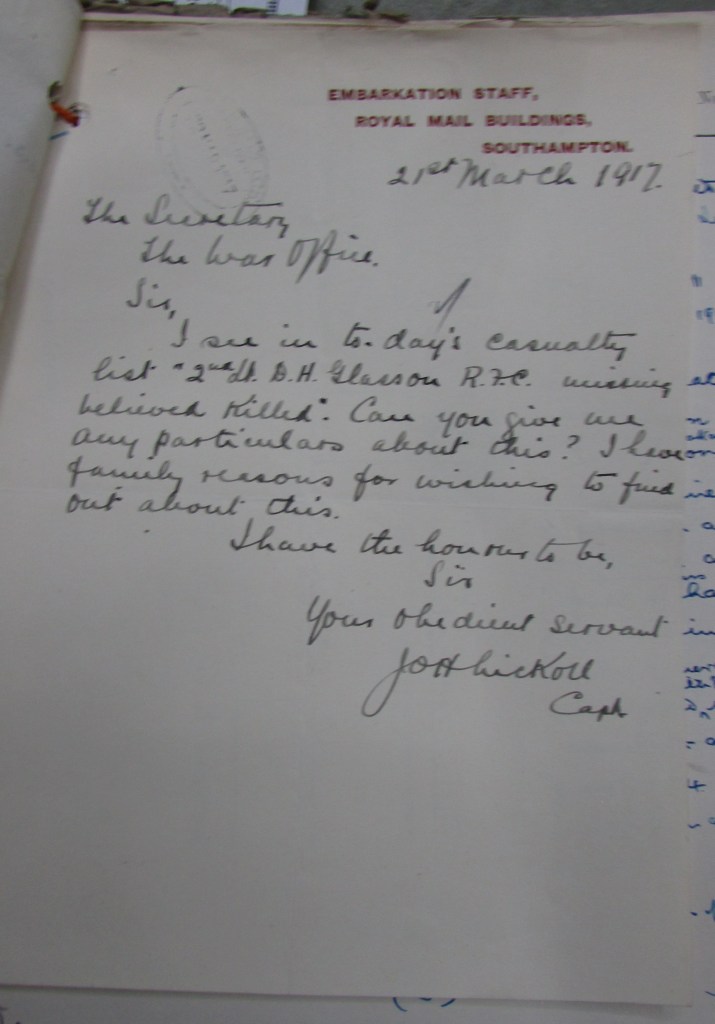 EMBARKATION STAFF,
ROYAL MAIL BUILDINGS,
SOUTHAMPTON.
21st March 1917.
The Secretary
The War Office.
Sir,
I see in to-day's casualty
list "2nd Lt. D.H. Glasson R.F.C. missing
believed killed". Can you give me
any particulars about this? I have
family reasons for wishing to find
out about this.
I have the honour to be,
Sir
Your obedient servant
Capt